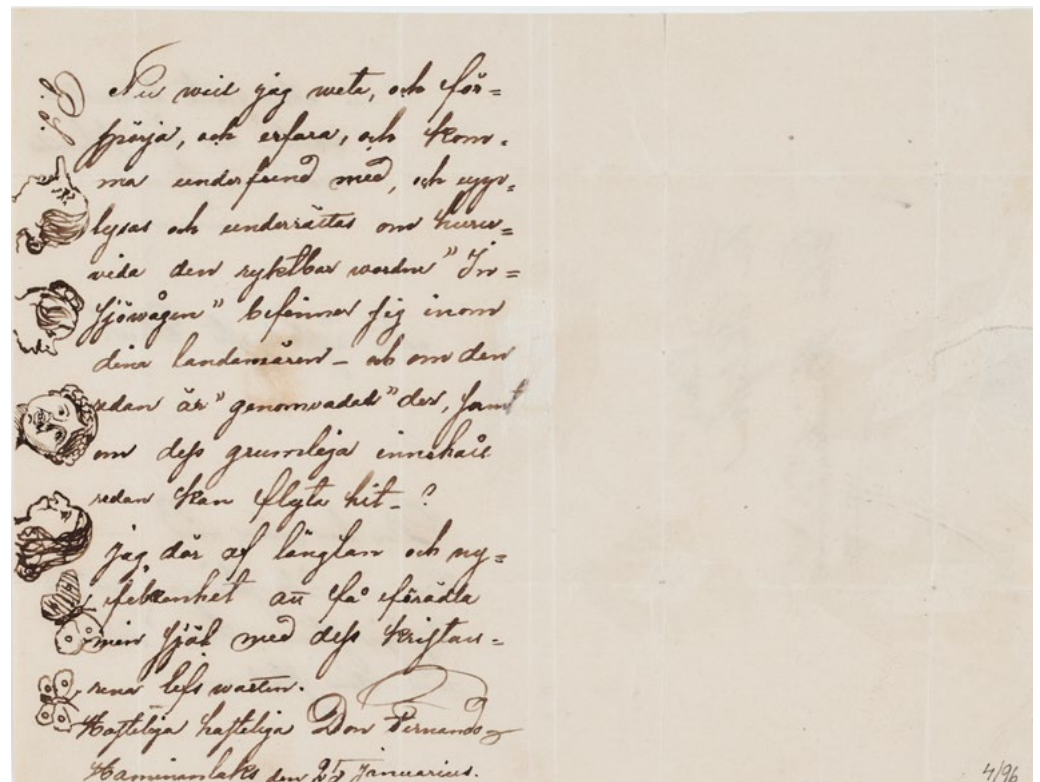 P.S.
Nu will jag weta, och för=
spörja, och erfara, och kom=
ma underfund med, och upp=
lysas och underrättas om huru=
vida den ryktbar wordne "In=
sjöwågen" befinner sig inom
dina landamären – och om den
redan är "genomvadad" der, samt
om dess grumliga innehåll
redan kan flyta hit – ?
jag dör af längtan och ny=
fikenhet att få förädla
min själ med dess kristall=
rena lefs watten.
Hasteliga hasteliga Don Fernando
Haminanlaks den 25 Januarius.
4/96